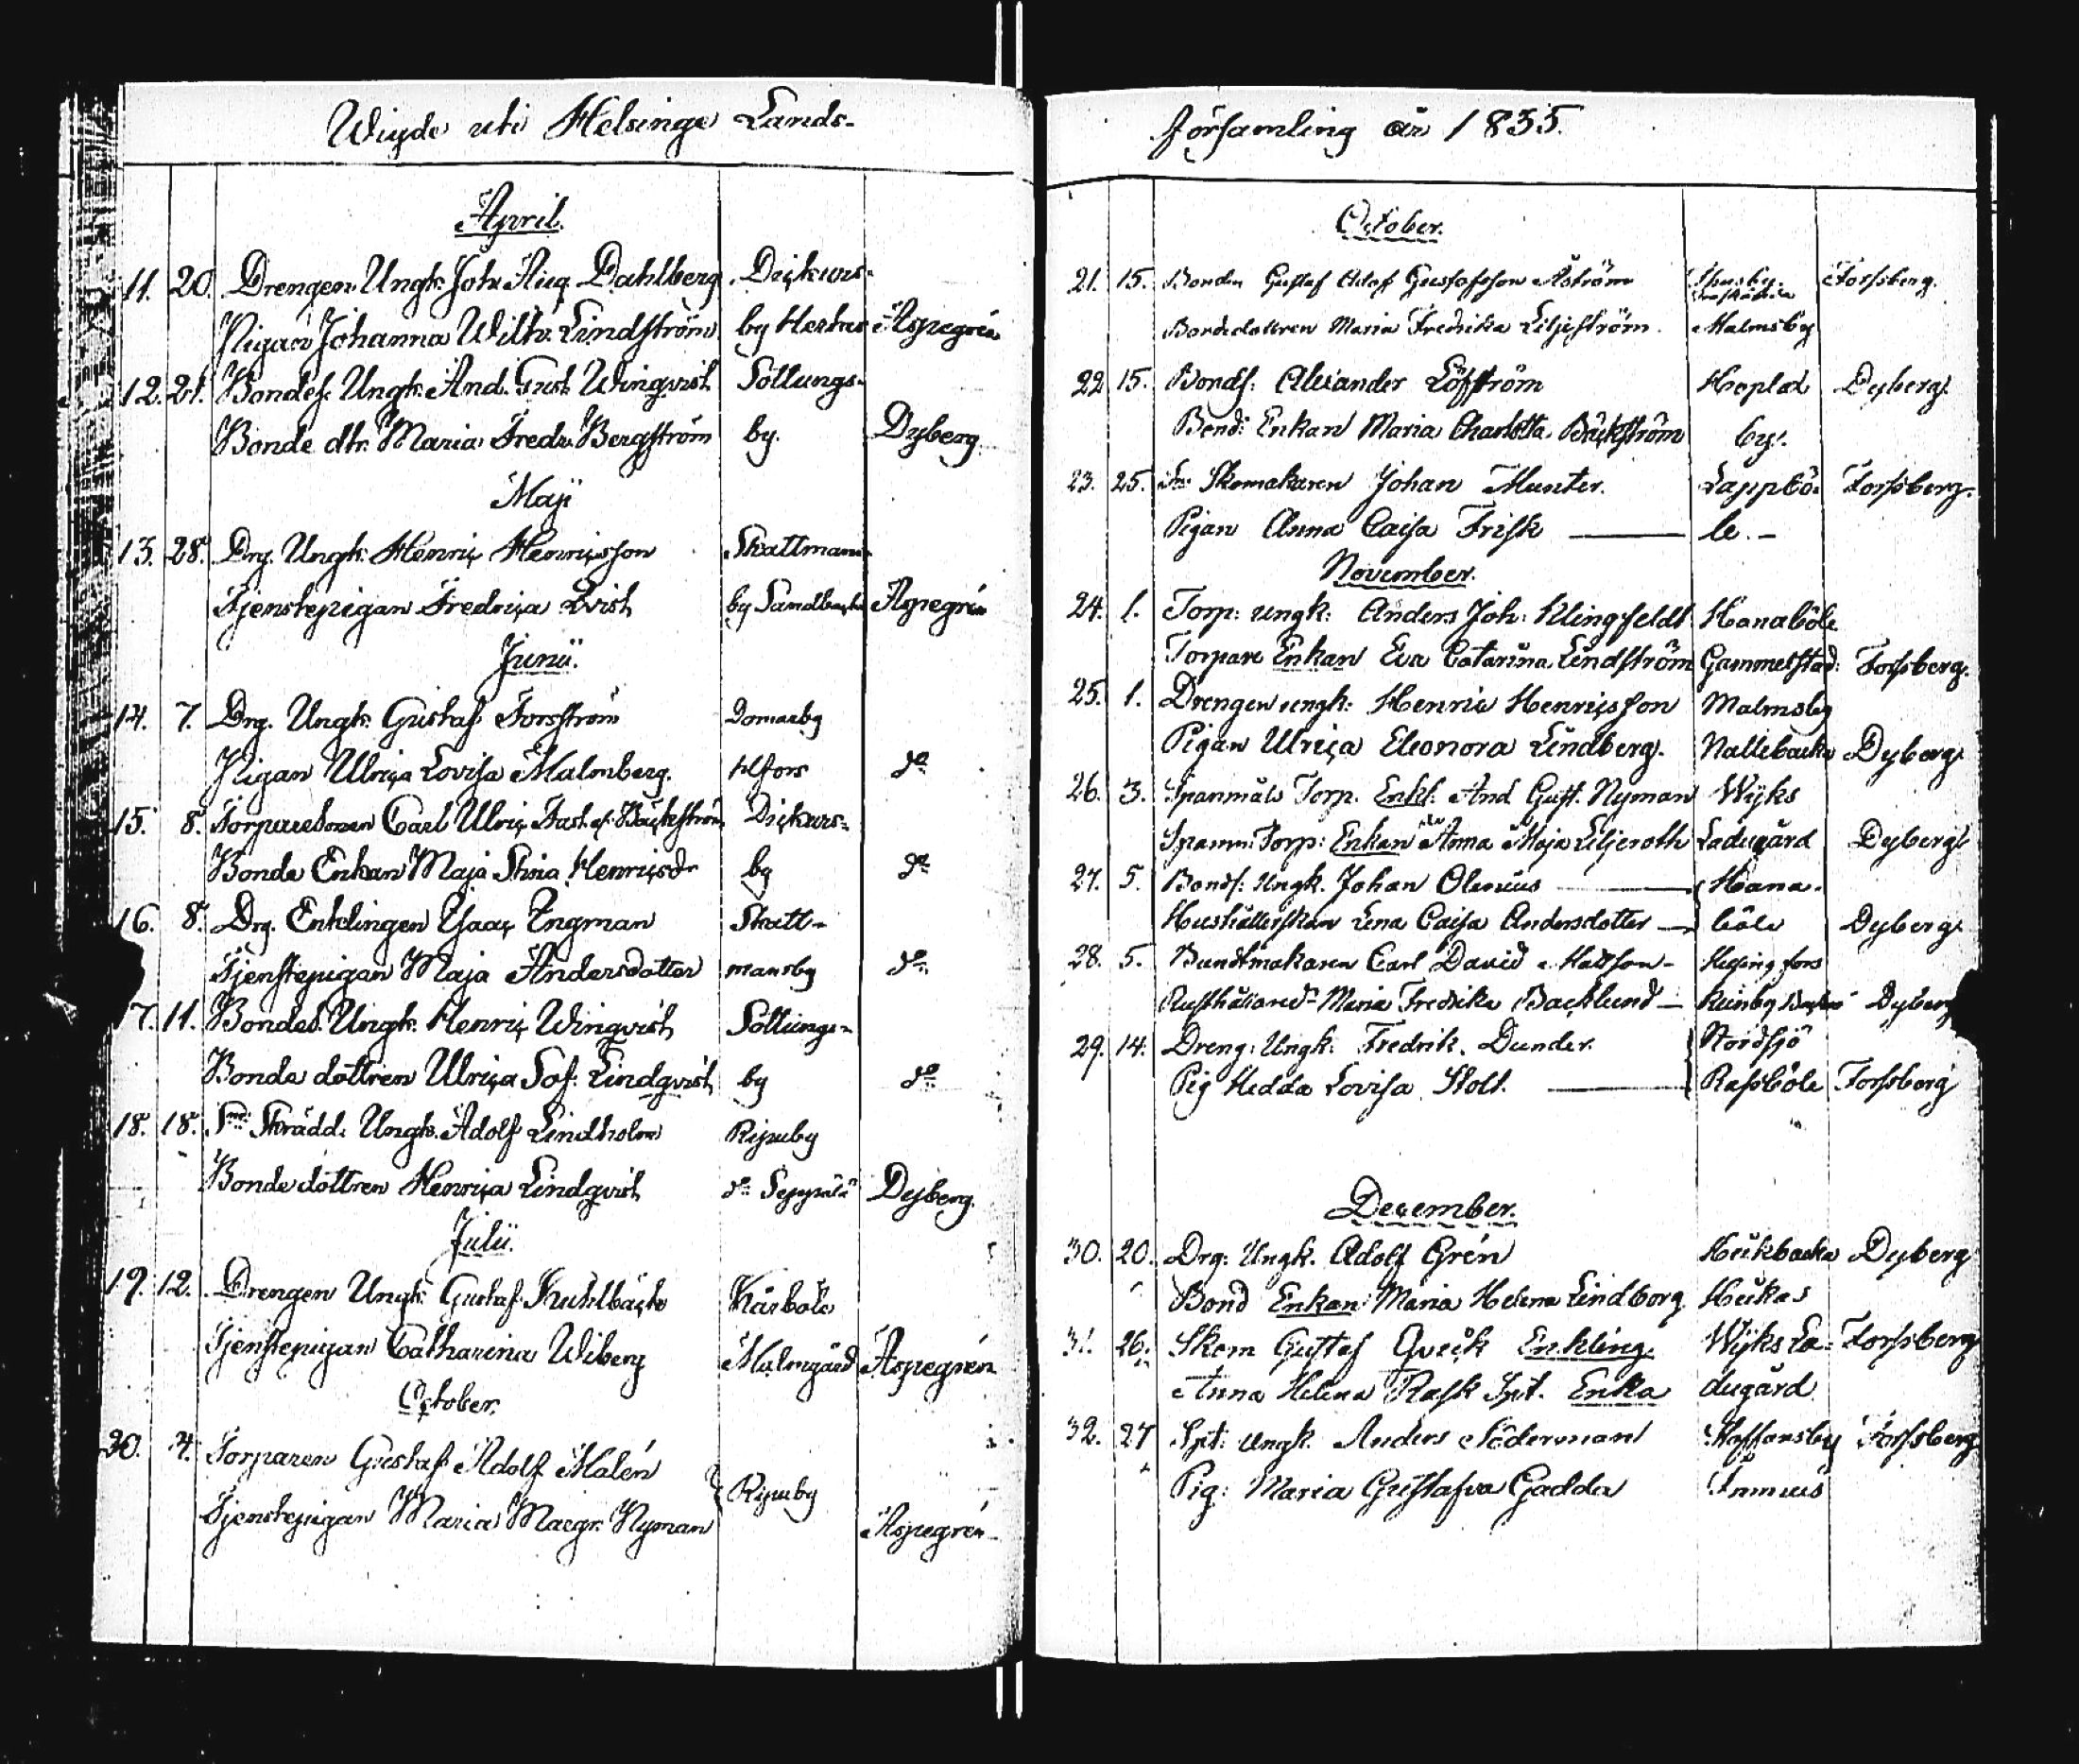 Wigde uti Helsinge Lands-
April.
11. 20. Drengen Ungk. Joh. Aug. Dahlberg Dickurs-
Pigan Johanna Wilh. Lindström by Herkas Aspegrén
12. 21. Bondes. Ungk. And. Gust. Winqvist Sottungs-
Bonde dtr. Maria Fredr. Bergström by. Dyberg
Maji
13. 28. Drg. Ungk. Henric Henricsson Skattmans-
Tjenstepigan Fredrica Qvist by Sandbacka Aspegrén
Junii.
14. 7. Drg. Ungk. Gustaf Forsström Domarby
Pigan Ulrica Lovisa Malmberg. Hfors do
15. 8. Torparesonen Carl Ulric Bäckström Dickurs-
Bonde Enkan Maja Stina Henricsdr by do
16. 8. Drg. Enklingen Isaac Engman Skatt-
Tjenstepigan Maja Andersdotter mansby do
17. 11. Bondes. Ungk. Henric Winqvist Sottungs-
Bonde dottren Ulrica Sof. Lindqvist by do
18. 18. Skrädd. Ungk. Adolf Lindholm Ripuby
Bonde dottren Henrica Lindqvist do Seppälä Dyberg.
Julii.
19. 12. Drengen Ungk. Gustaf Kuhlbäck Kårböle
Tjenstepigan Catharina Wiberg Malmgård Aspegrén
October.
20. 4. Torparen Gustaf Adolf Malén
Ripuby
Tjenstepigan Maria Margr. Nyman Aspegrén
församling år 1835.
October.
21. 15. Bonden Gustaf Adolf Gustafsson Åström Forssberg.
Bondedottren Maria Fredrika Liljeström. Malmsby
22 15. Bonds: Alexander Löfström Hoplax Dyberg.
Bond: Enkan Maria Charlotta Bäckström by.
23. 25. Skomakaren Johan Munter. Lappbö- Forssberg.
Pigan Anna Caisa Frisk le.
November.
24. 1. Torp: ungk: Anders Joh: Klingfeldt Hanaböle
Torpare Enkan Eva Catarina Lindström Gammelstad: Forssberg.
25. 1. Drengen ungk: Henric Henricsson Malmsby
Pigan Ulrica Eleonora Lindberg. Nallebacka Dyberg.
26. 3. Spanmåls Torp. Enkl: And. Gust. Nyman Wijks
Spanm: Torp: Enkan Anna Maja Liljeroth Ladugård Dyberg.
27. 5. Bonds: Ungk. Johan Olenius Hana-
Hushållerskan Lena Caisa Andersdotter böle Dyberg
28. 5. Buntmakaren Carl David Mattson Helsingfors
Rusthållared: Maria Fredrika Backlund Dyberg
29. 14. Dreng: Ungk: Fredrik Dunder. Nordsjö
Pig Hedda Lovisa Stolt. Rasböle Forssberg
December.
30. 20. Drg: Ungk. Adolf Grén Hukbacka Dyberg
Bond Enkan Maria Helena Lindborg Hukas
31. 26. Skom Gustaf Qvick Enkling. Wijks La- Forssberg
Anna Helena Rask Spt. Enka dugård
32. 27 Spt: Ungk. Anders Söderman Staffansby Forssberg
Pig: Maria Gustafva Gadda